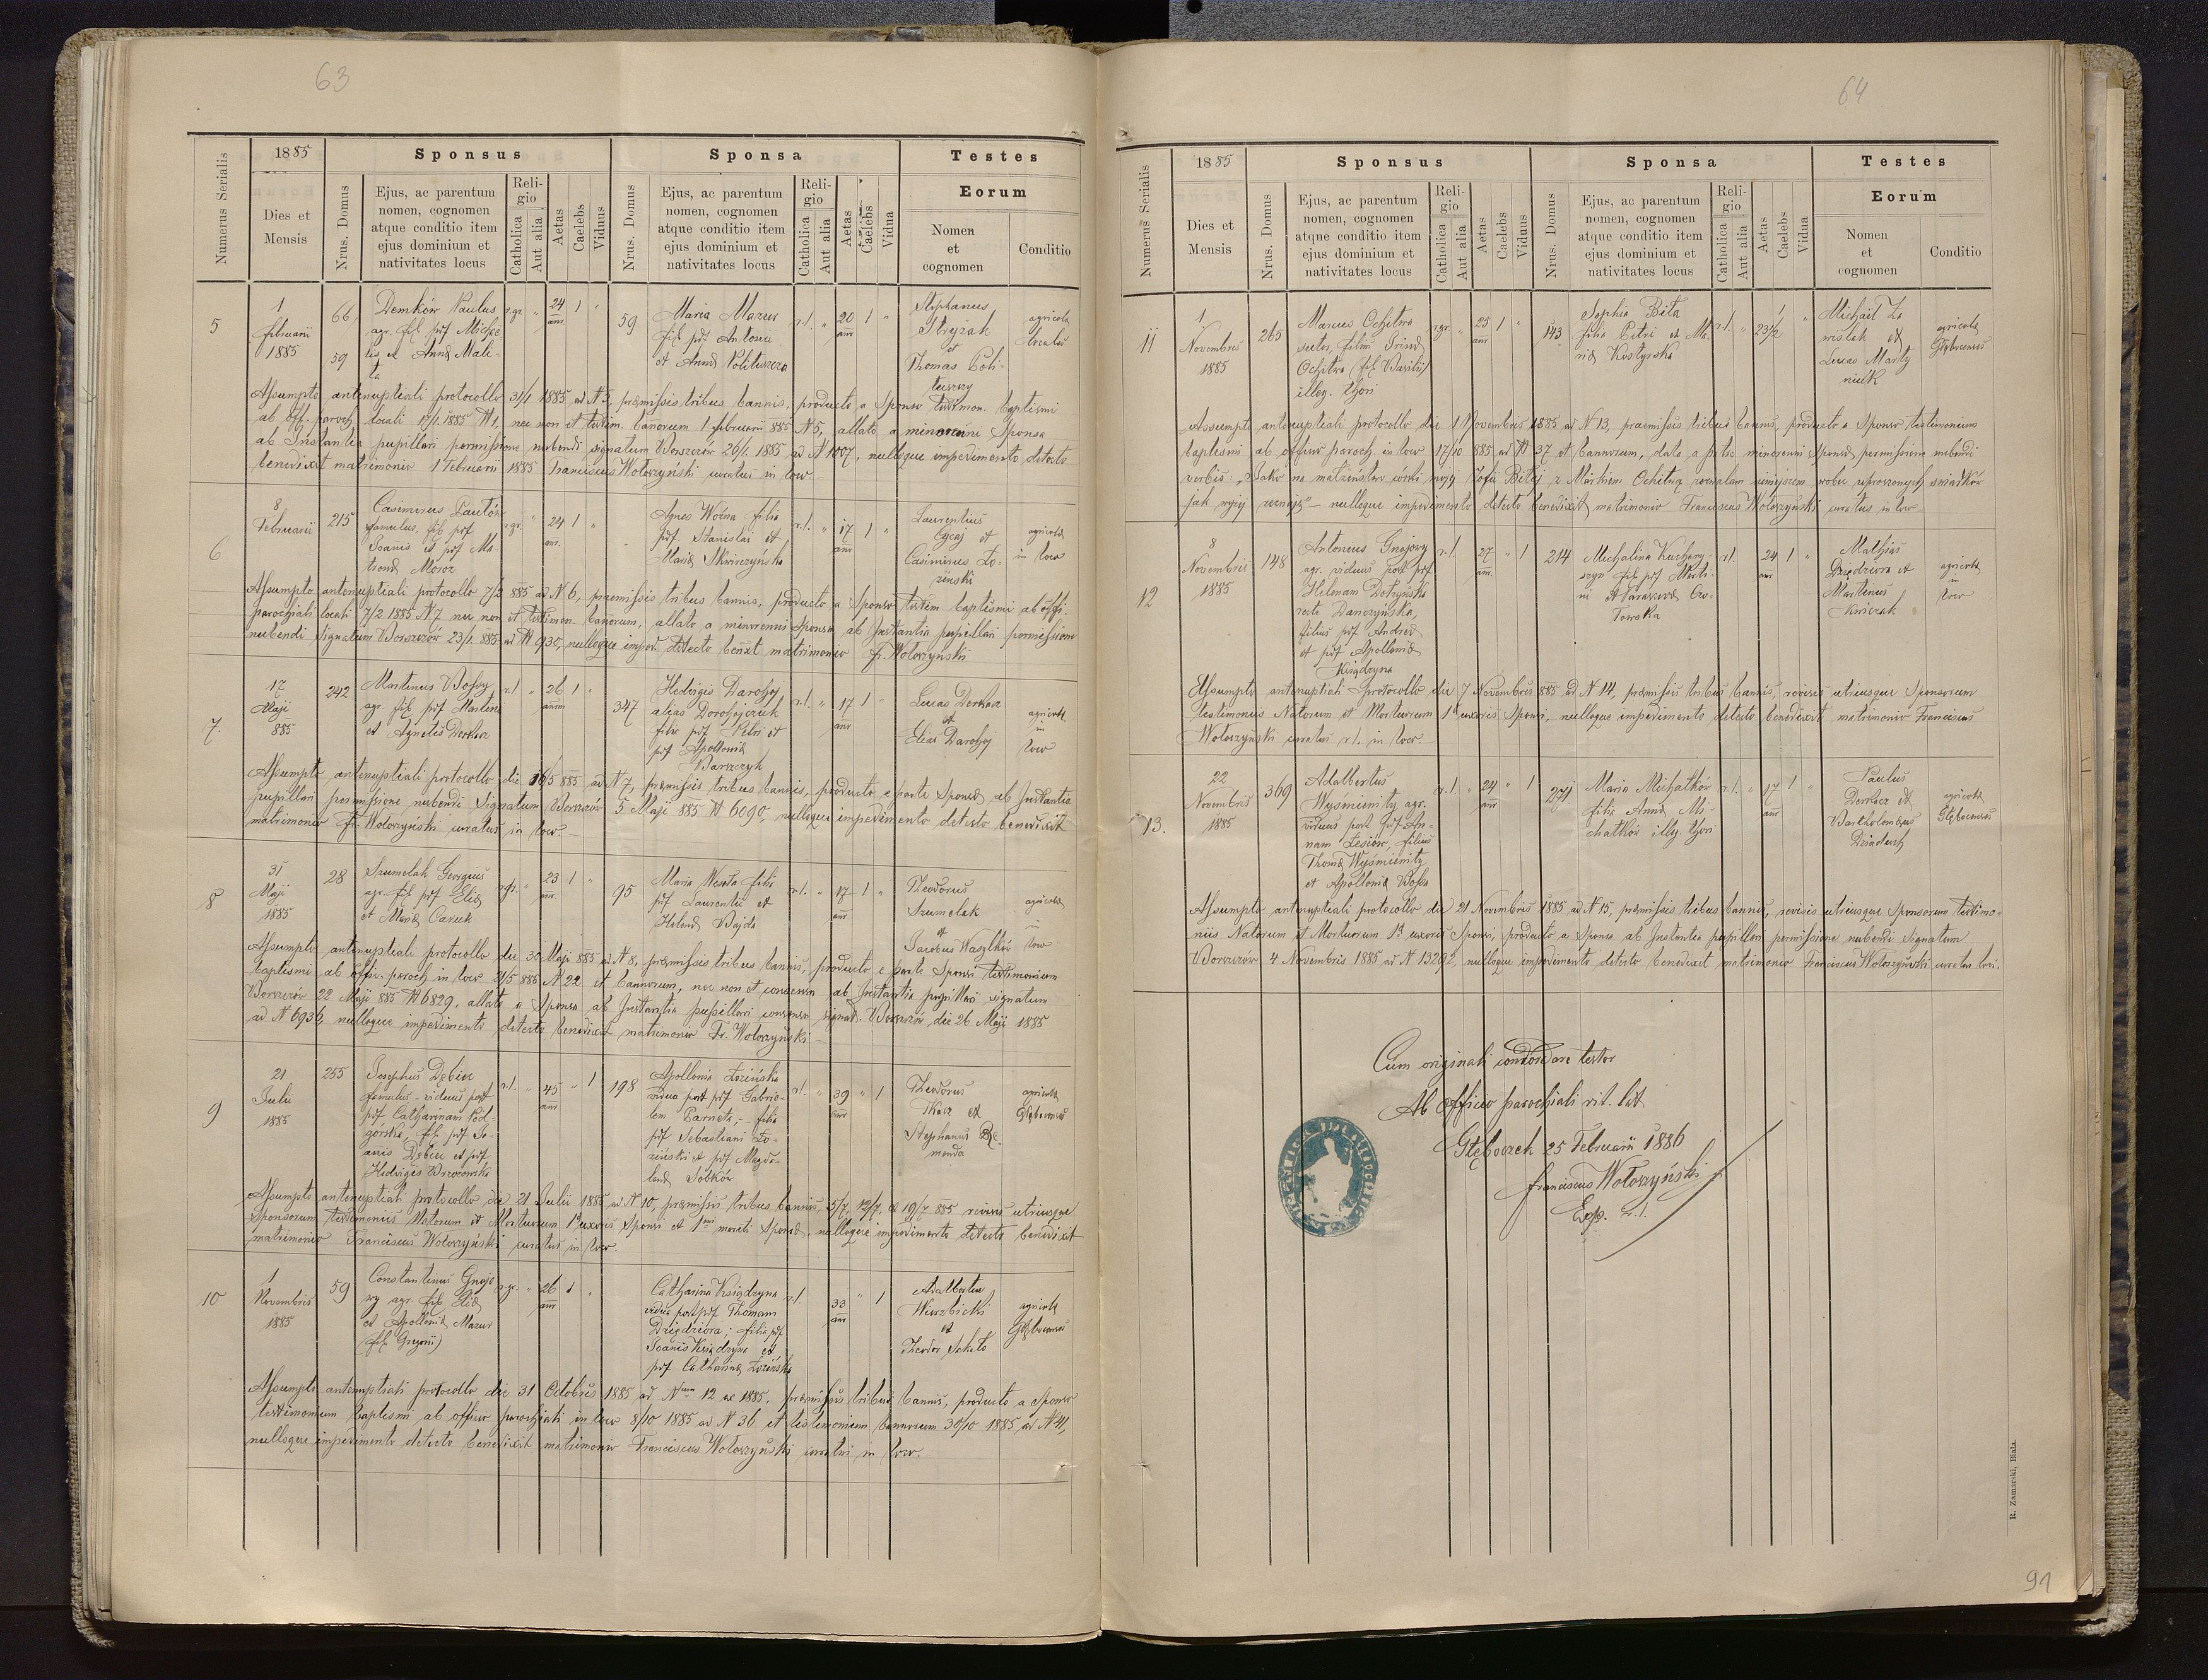 63
1885
Sponsus
Sponsa
Testes
Numerus Serialis
Dies et
Mensis
Nrus. Domus
Ejus, ac parentum
nomen, cognomen
atque conditio item
ejus dominium et
nativitates locus
Reli-
gio
Catholica
Aut alia
Aetas
Caelebs
Viduus
Nrus. Domus
Ejus, ac parentum
nomen, cognomen
atque conditio item
ejus dominium et
nativitates locus
Reli-
gio
Catholica
Aut alia
Aetas
Caelebs
Vidua
Eorum
Nomen
et
cognomen
Conditio
5
1
februarii
1885
66
59
Demków Paulus
agr. fil. p̃df Michae
lis et Annæ Mali-
ta
r.gr.
24
ann
1
59
Maria Mazur
fil. p̃df Antonii
et Annæ Polituszcza
r.l.
20
ann
1
Stephanus
Stryzak
et
Thomas Poli-
tuszczy
agricolæ
locales
Assumpto antenuptiali protocollo 31/1 1885 ad N 5, præmissis tribus bannis, producto a Sponso testimon. baptismi
ab off. paroch. locali 17/1 1885 N 1, nec non et testim. banorum 1 februarii 885 N 5, allato a minorenni Sponsa
ab Instantia pupillari permissione nubendi signatum Borszczów 26/1. 1885 ad N 1007, nulloque impedimento detecto
benedixit matrimonio 1 Februarii 1885 Franciscus Wołoszyński curatus in loco
6
8
Februarii
215
Casimirus Pautów
famulus, fil. p̃df
Joanis et p̃df Ma-
tronæ Moroz
r.gr.
24
ann.
1
Agnes Woźna filia
p̃df Stanislai et
Mariæ Skwirczyńska
r.l.
17
ann
1
Laurentius
Cycaj et
Casimirus Ło-
ziński
agricolæ
in loco
Assumpto antenuptiali protocollo 7/2 885 ad N 6, præmissis tribus bannis, producto a Sponso testim baptismi ab offi.
parochiali locali 7/2 1885 N 7 nec non et testimon. banorum, allato a minorenni Sponsa ab Instantia pupillari permissione
nubendi signatum Borszczów 23/1. 885 ad N 930, nulloque imped. detecto benxt matrimonio Fr. Wołoszyński
7.
17
Maji
885
242
Martinus Bossy
agr. fil. p̃df Martini
et Agnetis Derkacz
r.l
26
annm
1
347
Hedvigis Darohoj
alias Dorohojczuk
filia p̃df Petri et
p̃df Apolloniæ
Barszczyk
r.l.
17
ann
1
Lucas Derkacz
et
Elias Darohoj
agricolæ
in
loco
Assumpto antenuptiali protocollo die 16/5 885 ad N 7, præmissis tribus bannis, producto e parte Sponsæ ab Instantia
pupillari permissione nubendi signatum Borszczów 5 Maji 885 N 6090, nulloque impedimento detecto benedixit
matrimonio Fr. Wołoszyński curatus in loco
8
31
Maji
1885
28
Szumelak Georgius
agr. fil. p̃df Eliæ
et Mariæ Caruk
r.gr.
23
ann
1
95
Maria Weszta filia
p̃df Laurentii et
Helenæ Bajda
r.l.
17
ann
1
Theodorus
Szumelak
et
Jacobus Waszlków
agricolæ
in
loco
Assumpto antenuptiali protocollo die 30 Maji 885 ad N 8, præmissis tribus bannis, producto e parte Sponsi testimonium
baptismi ab offic. paroch in loco 21/5 885 N 22 et bannorum, nec non et consensu ab Instantia pupillari signatum
Borszczów 22 Maji 885 N 6829, allato a Sponsa ab Instantia pupillari consensu signat. Borszczów, die 26 Maji 1885
ad N 6936, nulloque impedimento detecto benedixit matrimonio Fr. Wołoszyński
9
21
Julii
1885
255
Josephus Dębicz
famulus - viduus post
p̃df Catharinam Pod-
górska, fil. p̃df Jo-
anis Dębicz et p̃df
Hedvigis Brzozowska
r.l.
45
ann
1
198
Apollonia Łozińska
vidua post p̃df Gabrie-
lem Parneta, - filia
p̃df Sebastiani Ło-
ziński et p̃df Magda-
lenæ Sobków
r.l.
39
ann
1
Theodorus
Tkacz et
Stephanus Re-
menda
agricolæ
Głęboc̃enses
Assumpto antenuptiali protocollo die 21 Julii 1885 ad N 10, præmissis tribus bannis, 5/7, 12/7, et 19/7 885 revisis utriusque
Sponsorum testimoniis Natorum et Mortuorum 1æ uxoris Sponsi et 1mi mariti Sponsæ, nulloque impedimento detecto benedixit
matrimonio Franciscus Wołoszyński curatus in loco.
10
1
Novembris
1885
59
Constantinus Gnojo
wy agr. fil. Eliæ
et Apolloniæ Mazur
(fil. Gregorii)
r.gr.
26
ann
1
Catharina Księdzyna
vidua post p̃df Thomam
Dziędziora; filia p̃df
Joanis Księdzyna et
p̃df Catharinæ Łozińska
r.l.
33
ann
1
Adalbertus
Wierzbicki
et
Theodor Scheto
agricolæ
Głęboc̃enses
Assumpto antenuptiali protocollo die 31 Octobris 1885 ad Num 12 ex 1885, præmissis tribus bannis, producto a Sponso
testimonium baptismi ab officio parochiali in loco 8/10 1885 ad N 36 et testimonium bannorum 30/10 1885 ad N 41,
nulloque impedimento detecto benedixit matrimonio Franciscus Wołoszyński curatus in loco.
64
1885
Sponsus
Sponsa
Testes
Numerus Serialis
Dies et
Mensis
Nrus. Domus
Ejus, ac parentum
nomen, cognomen
atque conditio item
ejus dominium et
nativitates locus
Reli-
gio
Catholica
Aut alia
Aetas
Caelebs
Viduus
Nrus. Domus
Ejus, ac parentum
nomen, cognomen
atque conditio item
ejus dominium et
nativitates locus
Reli-
gio
Catholica
Aut alia
Aetas
Caelebs
Vidua
Eorum
Nomen
et
cognomen
Conditio
11
1
Novembris
1885
265
Marcus Ochitwa
sutor, filius Irinæ
Ochitwa (fil. Basilii)
illeg. thori
r.gr.
25
ann
1
143
Sophia Biła
filia Petri et Ma-
riæ Kostyrska
r.l.
23/2
1
Michaił Za
nislak et
Lucas Marty
niuk
agricolæ
Głęboc̃enses
Assumpto antenuptiali protocollo die 1 Novembris 1885 ad N 13, praemissis tribus bannis, producto a Sponso testimonium
baptismi ab officio paroch. in loco 17/10 885 ad N 37 et bannorum, dato a patre minorenni Sponsæ permissione nubendi
verbis: „Jako na małżeństwo córki mojej Zofii Biłej z Markiem Ochitwą zezwalam niniejszem wobec uproszonych świadków
jak wyżej zeznaję" — nulloque impedimento detecto benedixit matrimonio Franciscus Wołoszyński curatus in loco
12
8
Novembris
1885
148
Antonius Gnojowy
agr. viduus post p̃df
Helenam Dołzyńska
recte Danczyńska,
filius p̃df Andreæ
et p̃df Apolloniæ
Księdzyna
r.l.
27
ann.
1
214
Michalina Kuchary
szyn fil. p̃df Marti-
ni et Parascevæ
r.l.
24
ann
1
Mathias
Dziędziora et
Martinus
Kniczak
agricolæ
in
loco
Assumpto antenuptiali protocollo die 7 Novembris 885 ad N 14, præmissis tribus bannis, revisis utriusque Sponsorum
testimoniis Natorum et Mortuorum 1æ uxoris Sponsi, nulloque impedimento detecto benedixit matrimonio Franciscus
Wołoszyński curatus r.l. in loco.
13.
22
Novembris
1885
369
Adalbertus
Wyśmienity agr.
viduus post p̃df An-
nam Łesiów, filius
Thomæ Wyśmienity
et Apolloniæ Bossa
r.l.
24
ann
1
271
Maria Michałków
filia Annæ Mi-
chałków illeg. thori
r.l.
17
ann
1
Paulus
Derkacz et
Bartholomæus
Dziaduch
agricolæ
Głęboc̃enses
Assumpto antenuptiali protocollo die 21 Novembris 1885 ad N 15, præmissis tribus bannis, revisis utriusque Sponsorum testimo-
niis Natorum et Mortuorum 1æ uxoris Sponsi, producto a Sponsa ab Instantia pupillari permissione nubendi signatum
Borszczów 4 Novembris 1885 ad N 13292, nulloque impedimento detecto benedixit matrimonio Franciscus Wołoszyński curatus loci.
Cum originali concordare testor
Ab Officio parochiali rit. lat
Głęboczek 25 Februarii 1886
Franciscus Wołoszyński
Exp. r. l.
R. Zamarski, Biala.
91